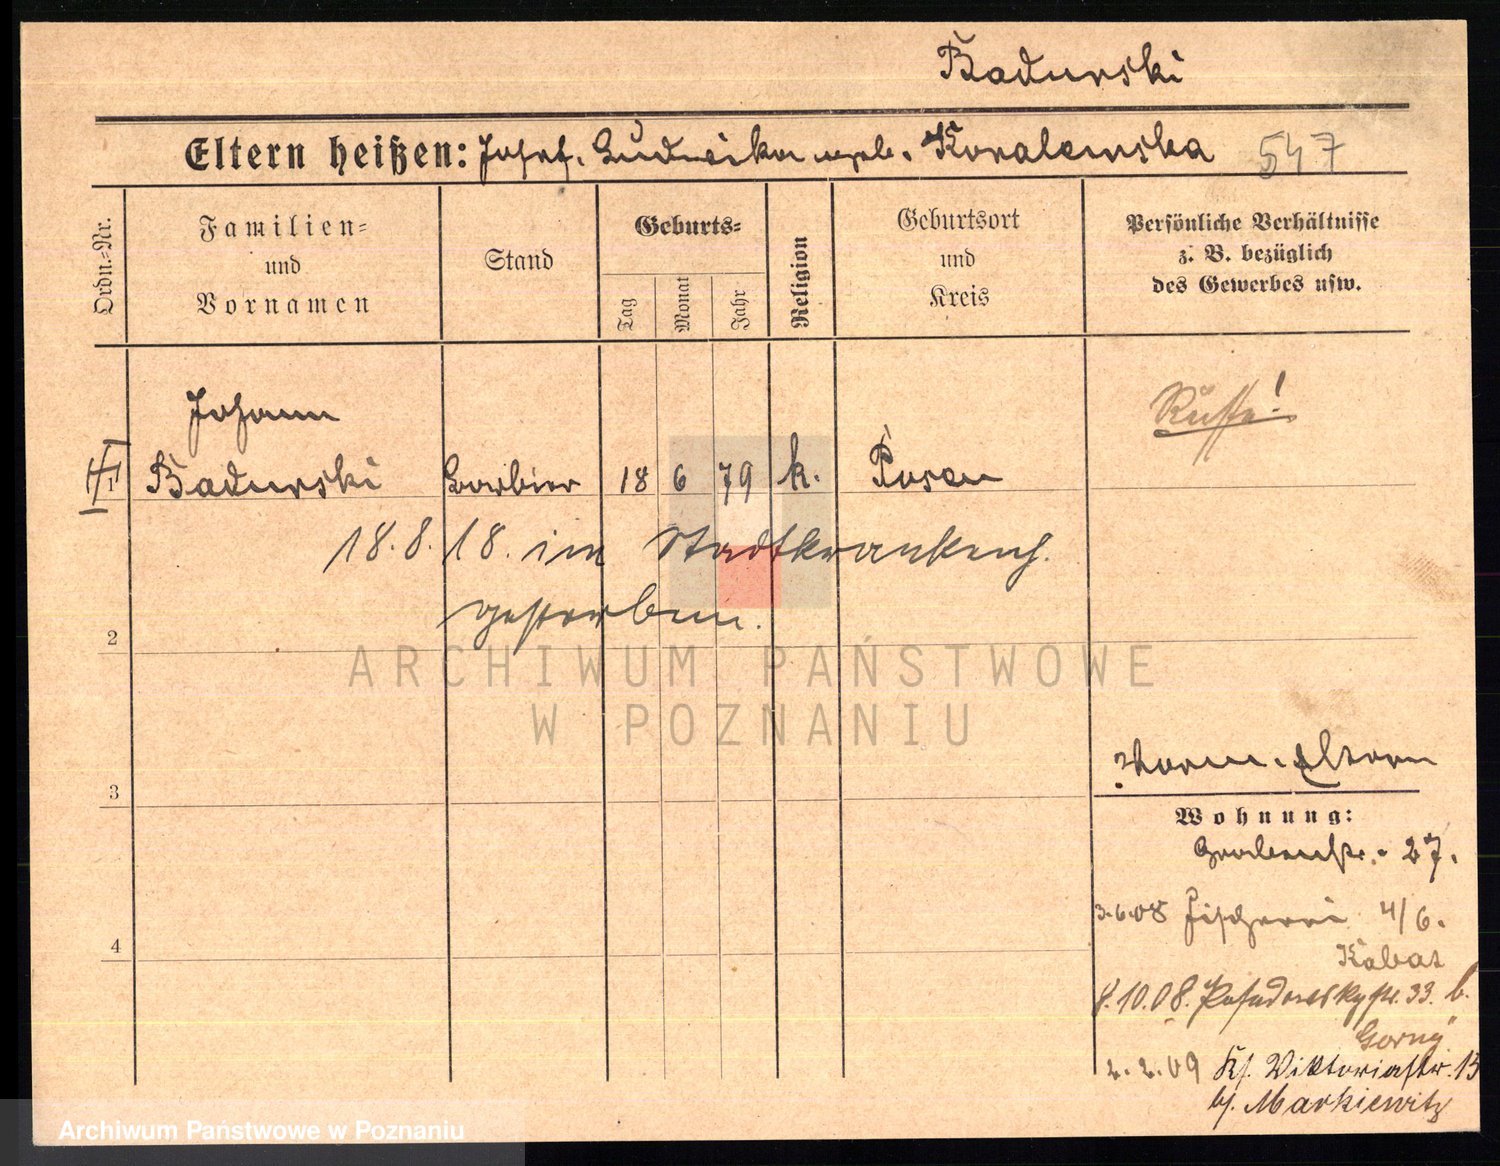 Badurski
Eltern heißen: Josef. Ludwika geb. Kovalewska 547
Ordn.-Nr.
Familien-
und
Vornamen
Stand
Geburts-
Tag
Monat
Jahr
Religion
Geburtsort
und
Kreis
Persönliche Verhältnisse
z. B. bezüglich
des Gewerbes usw.
Johann
Badurski Barbier 18 6 79 k. Posen
Russe!
18.8.18. im Stadtkrankenh.
gestorben.
2
ARCHIWUM PAŃSTWOWE
W POZNANIU
3
Eltern
Wohnung:
Grabenstr. 27.
3.6.08 Fischerei 4/6.
Kabat
8.10.08. Posadowskystr. 33. b.
Gorny
4
2.2.09 Kl. Viktoriastr. 13
b/. Markiewitz
Archiwum Państwowe w Poznaniu